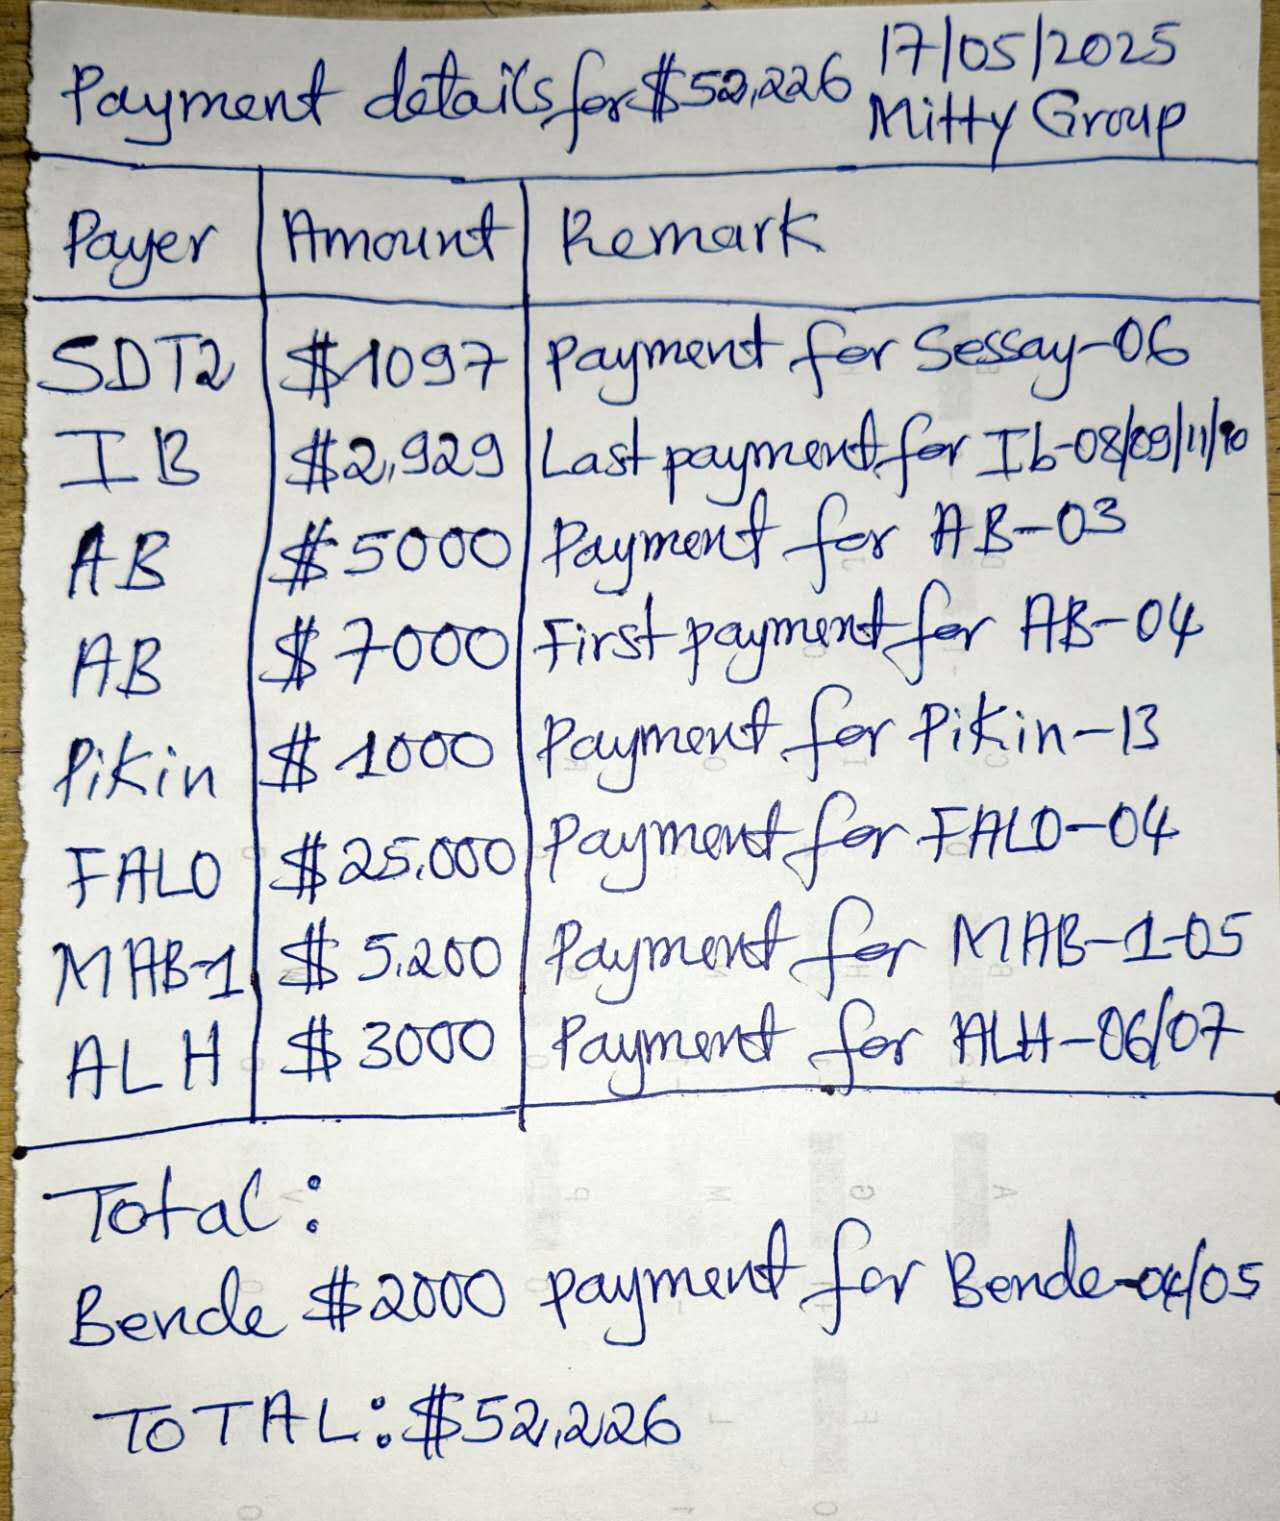 Payment details for $52,226 17/05/2025
Mitty Group
Payer Amount Remark
SDT2 $1097 Payment for Sessay-06
IB $2,929 Last payment for Ib-08/09/11/10
AB $5000 Payment for AB-03
AB $7000 First payment for AB-04
Pikin $1000 Payment for Pikin-13
FALO $25,000 Payment for FALO-04
MAB-1 $5,200 Payment for MAB-1-05
ALH $3000 Payment for ALH-06/07
Total:
Bende $2000 payment for Bende-04/05
TOTAL: $52,226